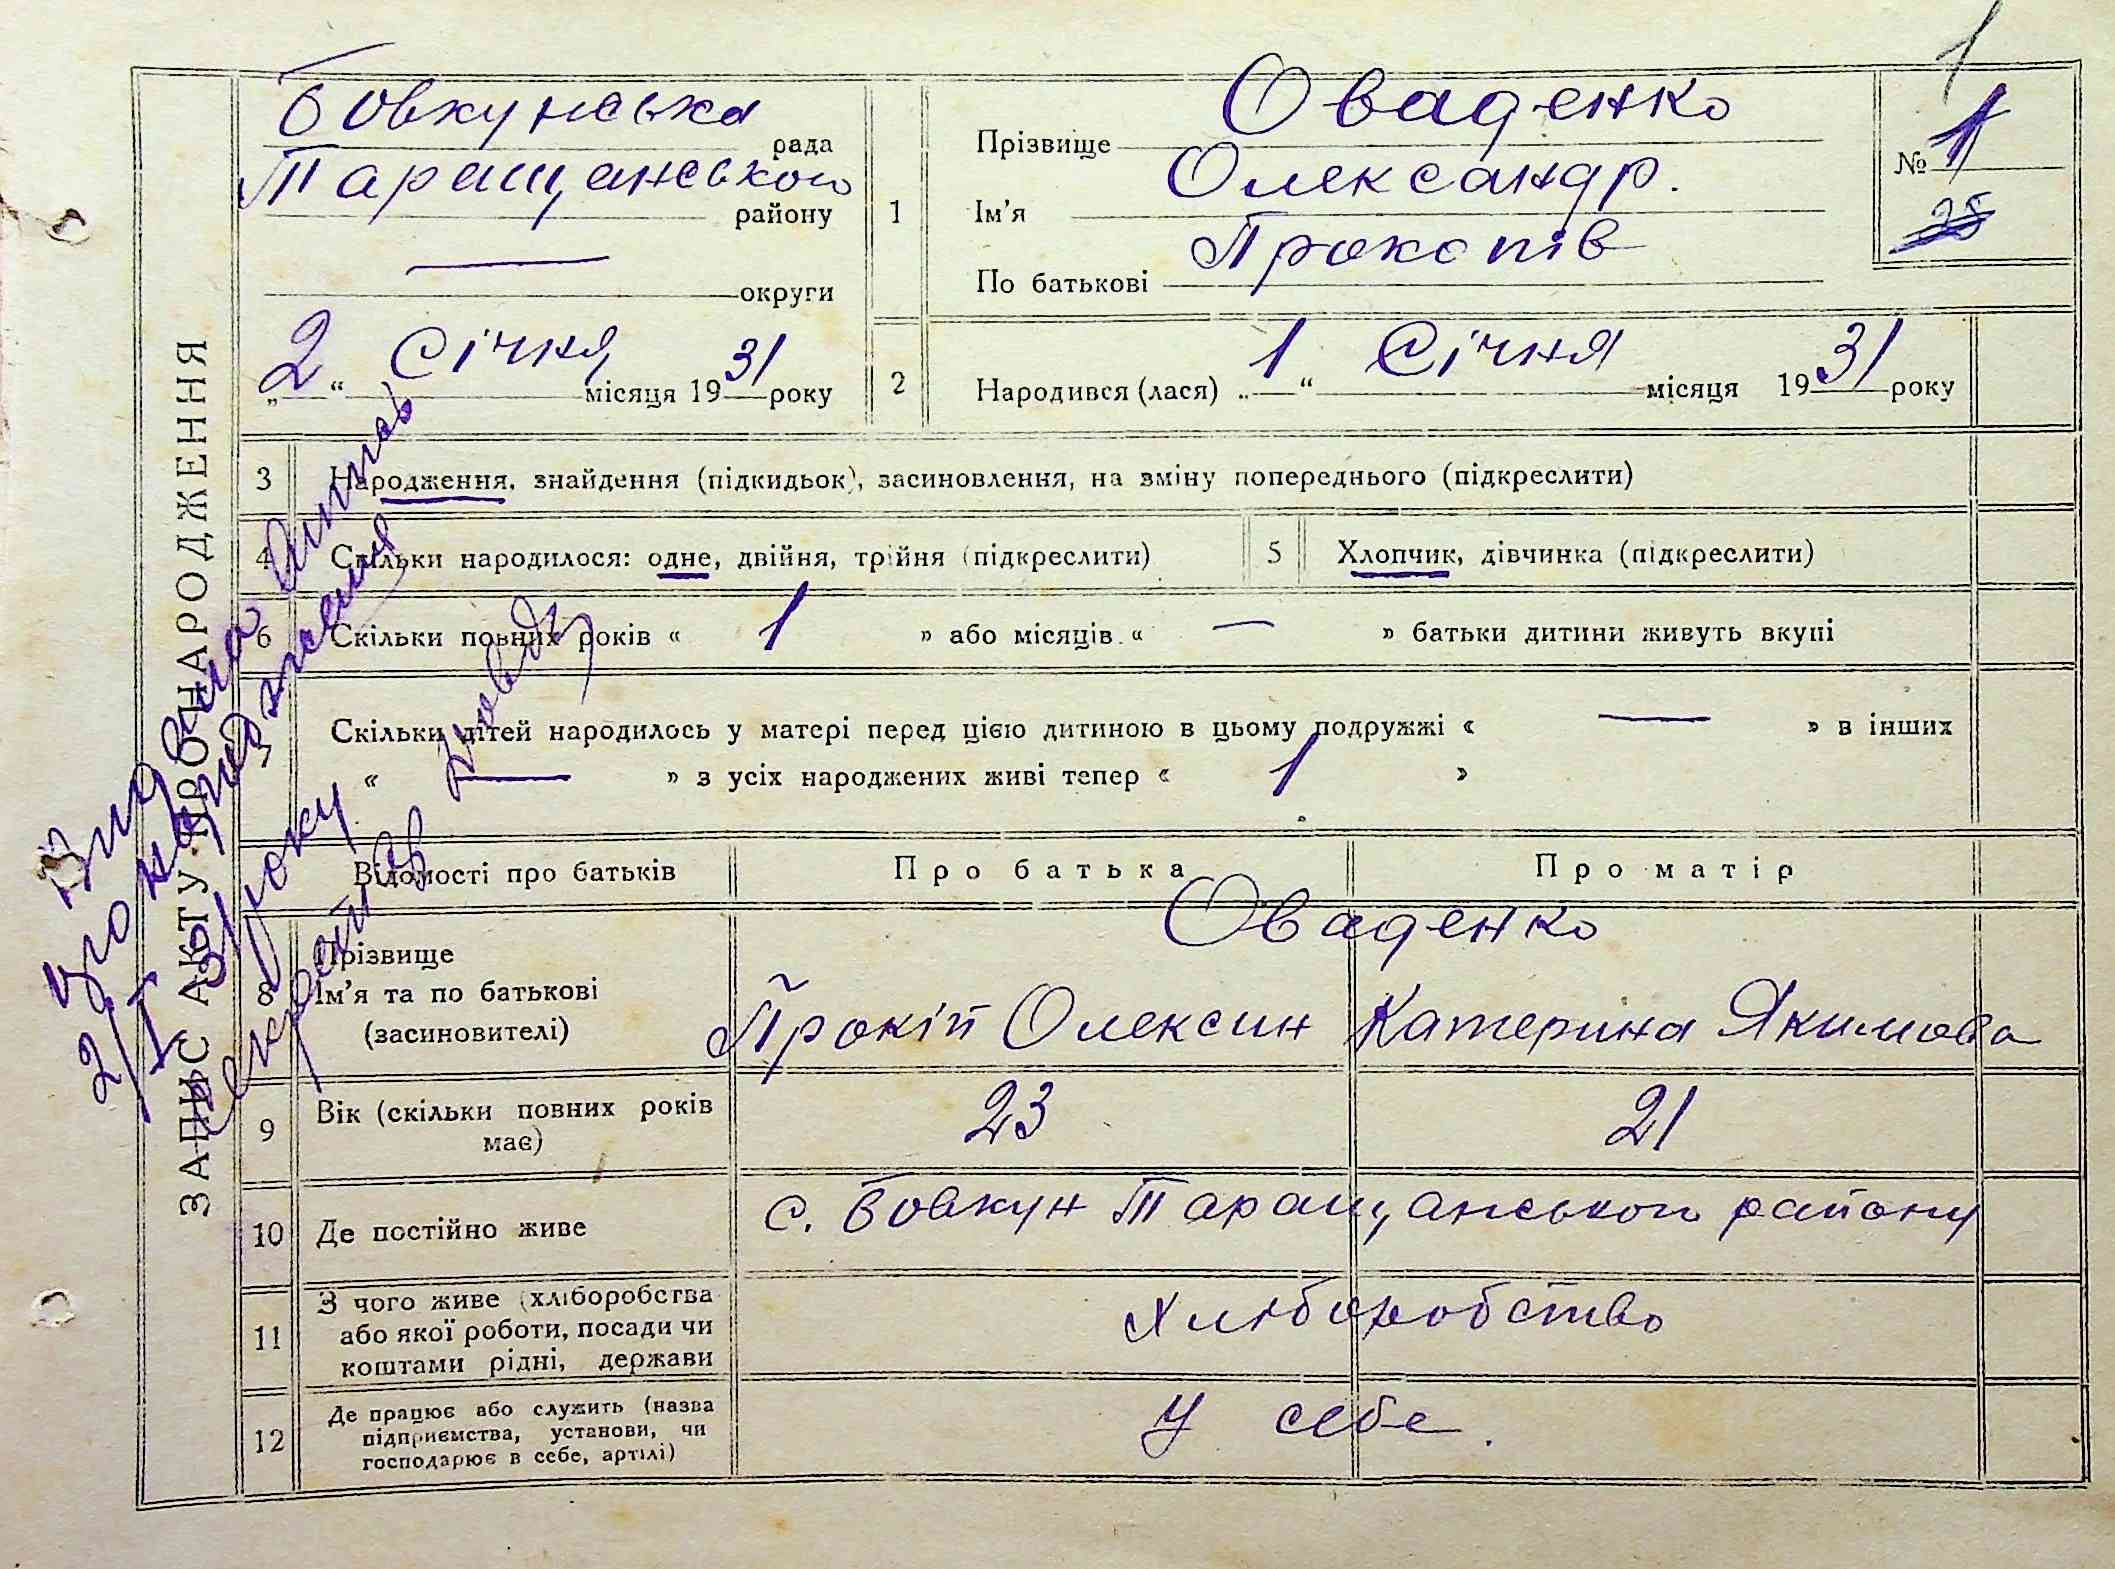 1
Бовкунська рада
Таращанського району
— округи
„2“ Січня місяця 1931 року
1
Прізвище Оваденко
Ім'я Олександр.
По батькові Прокопів
№ 1
25
2
Народився (лася) „1“ Січня місяця 1931 року
ЗАПИС АКТУ ПРО НАРОДЖЕННЯ
3 Народження, знайдення (підкидьок), засиновлення, на зміну попереднього (підкреслити)
4 Скільки народилося: одне, двійня, трійня (підкреслити)
5 Хлопчик, дівчинка (підкреслити)
6 Скільки повних років « 1 » або місяців « — » батьки дитини живуть вкупі
7 Скільки дітей народилось у матері перед цією дитиною в цьому подружжі « — » в інших
« — » з усіх народжених живі тепер « 1 »
Відомості про батьків
Про батька
Про матір
8 Прізвище
Ім'я та по батькові
(засиновителі)
Оваденко
Прокіп Олексин
Катерина Якимова
9 Вік (скільки повних років
має)
23
21
10 Де постійно живе
с. Бовкун Таращанського району
11 З чого живе (хліборобства
або якої роботи, посади чи
коштами рідні, держави
хліборобство
12 Де працює або служить (назва
підприємства, установи, чи
господарює в себе, артілі)
У себе.
Видана
народження
2/I 31 року